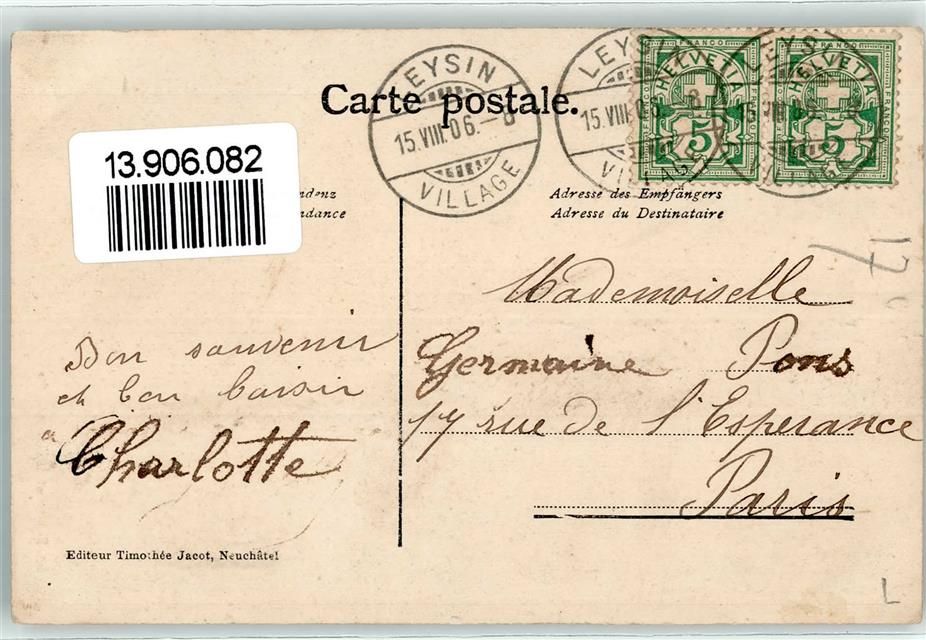 Carte postale.
13.906.082
LEYSIN
15.VIII.06.-8
VILLAGE
LEYSIN
15.VIII.06.-8
VILLAGE
FRANCO
HELVETIA
5
FRANCO
HELVETIA
5
denz
dance
Adresse des Empfängers
Adresse du Destinataire
17
Mademoiselle
Germaine Pons
17 rue de l'Esperance
Paris
Bon souvenir
et bon baisir
Charlotte
Editeur Timothée Jacot, Neuchâtel
L